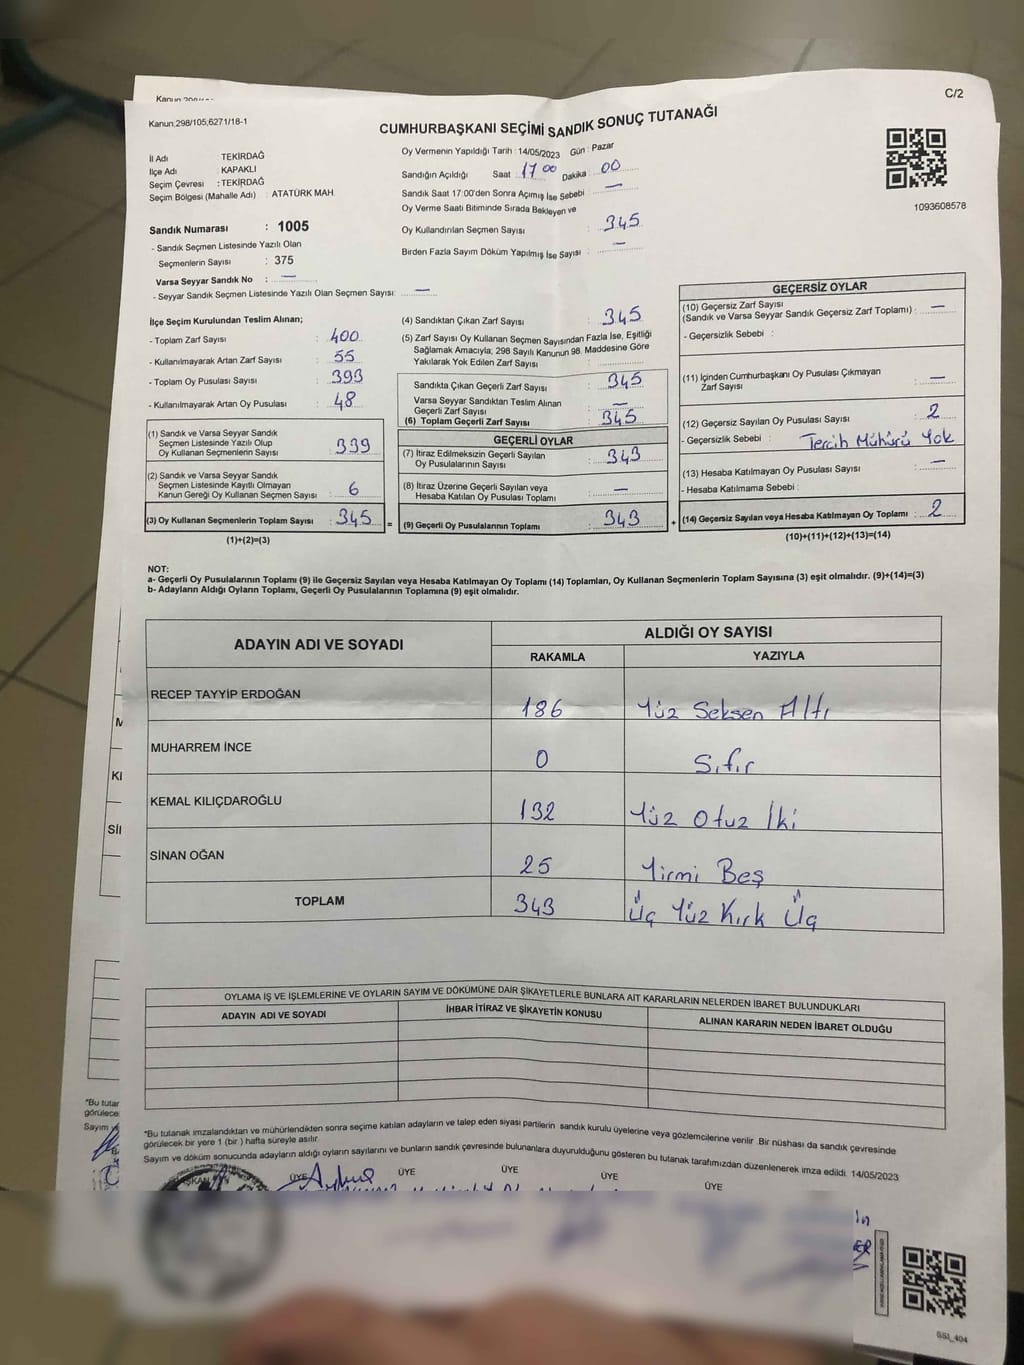 Kanun:298/105,6271/18-1
C/2
CUMHURBAŞKANI SEÇİMİ SANDIK SONUÇ TUTANAĞI
İl Adı TEKİRDAĞ
İlçe Adı : KAPAKLI
Seçim Çevresi : TEKİRDAĞ
Seçim Bölgesi (Mahalle Adı) : ATATÜRK MAH.
Oy Vermenin Yapıldığı Tarih : 14/05/2023 Gün : Pazar
Sandığın Açıldığı Saat : 17 00 Dakika : 00
Sandık Saat 17:00'den Sonra Açımış İse Sebebi : —
Oy Verme Saati Bitiminde Sırada Bekleyen ve
Oy Kullandırılan Seçmen Sayısı : 345
Birden Fazla Sayım Döküm Yapılmış İse Sayısı : —
1093608578
Sandık Numarası : 1005
- Sandık Seçmen Listesinde Yazılı Olan
Seçmenlerin Sayısı : 375
Varsa Seyyar Sandık No : —
- Seyyar Sandık Seçmen Listesinde Yazılı Olan Seçmen Sayısı: —
İlçe Seçim Kurulundan Teslim Alınan;
- Toplam Zarf Sayısı : 400
- Kullanılmayarak Artan Zarf Sayısı : 55
- Toplam Oy Pusulası Sayısı : 393
- Kullanılmayarak Artan Oy Pusulası : 48
(1) Sandık ve Varsa Seyyar Sandık
Seçmen Listesinde Yazılı Olup
Oy Kullanan Seçmenlerin Sayısı : 339
(2) Sandık ve Varsa Seyyar Sandık
Seçmen Listesinde Kayıtlı Olmayan
Kanun Gereği Oy Kullanan Seçmen Sayısı : 6
(3) Oy Kullanan Seçmenlerin Toplam Sayısı : 345 =
(1)+(2)=(3)
(4) Sandıktan Çıkan Zarf Sayısı : 345
(5) Zarf Sayısı Oy Kullanan Seçmen Sayısından Fazla İse, Eşitliği
Sağlamak Amacıyla; 298 Sayılı Kanunun 98. Maddesine Göre
Yakılarak Yok Edilen Zarf Sayısı :
Sandıkta Çıkan Geçerli Zarf Sayısı : 345
Varsa Seyyar Sandıktan Teslim Alınan
Geçerli Zarf Sayısı : —
(6) Toplam Geçerli Zarf Sayısı : 345
GEÇERLİ OYLAR
(7) İtiraz Edilmeksizin Geçerli Sayılan
Oy Pusulalarının Sayısı : 343
(8) İtiraz Üzerine Geçerli Sayılan veya
Hesaba Katılan Oy Pusulası Toplamı : —
(9) Geçerli Oy Pusulalarının Toplamı : 343 +
GEÇERSİZ OYLAR
(10) Geçersiz Zarf Sayısı
(Sandık ve Varsa Seyyar Sandık Geçersiz Zarf Toplamı) : —
- Geçersizlik Sebebi :
(11) İçinden Cumhurbaşkanı Oy Pusulası Çıkmayan
Zarf Sayısı : —
(12) Geçersiz Sayılan Oy Pusulası Sayısı : 2
- Geçersizlik Sebebi : Tercih Mühürü Yok
(13) Hesaba Katılmayan Oy Pusulası Sayısı : —
- Hesaba Katılmama Sebebi :
(14) Geçersiz Sayılan veya Hesaba Katılmayan Oy Toplamı : 2
(10)+(11)+(12)+(13)=(14)
NOT:
a- Geçerli Oy Pusulalarının Toplamı (9) ile Geçersiz Sayılan veya Hesaba Katılmayan Oy Toplamı (14) Toplamları, Oy Kullanan Seçmenlerin Toplam Sayısına (3) eşit olmalıdır. (9)+(14)=(3)
b- Adayların Aldığı Oyların Toplamı, Geçerli Oy Pusulalarının Toplamına (9) eşit olmalıdır.
ADAYIN ADI VE SOYADI ALDIĞI OY SAYISI
RAKAMLA YAZIYLA
RECEP TAYYİP ERDOĞAN 186 Yüz Seksen Altı
MUHARREM İNCE 0 Sıfır
KEMAL KILIÇDAROĞLU 132 Yüz Otuz İki
SİNAN OĞAN 25 Yirmi Beş
TOPLAM 343 Üç Yüz Kırk Üç
OYLAMA İŞ VE İŞLEMLERİNE VE OYLARIN SAYIM VE DÖKÜMÜNE DAİR ŞİKAYETLERLE BUNLARA AİT KARARLARIN NELERDEN İBARET BULUNDUKLARI
ADAYIN ADI VE SOYADI İHBAR İTİRAZ VE ŞİKAYETİN KONUSU ALINAN KARARIN NEDEN İBARET OLDUĞU
*Bu tutanak imzalandıktan ve mühürlendikten sonra seçime katılan adayların ve talep eden siyasi partilerin sandık kurulu üyelerine veya gözlemcilerine verilir .Bir nüshası da sandık çevresinde
görülecek bir yere 1 (bir ) hafta süreyle asılır.
Sayım ve döküm sonucunda adayların aldığı oyların sayılarını ve bunların sandık çevresinde bulunanlara duyurulduğunu gösteren bu tutanak tarafımızdan düzenlenerek imza edildi. 14/05/2023
ÜYE ÜYE ÜYE ÜYE ÜYE
*Bu tutar
görülece
Sayım